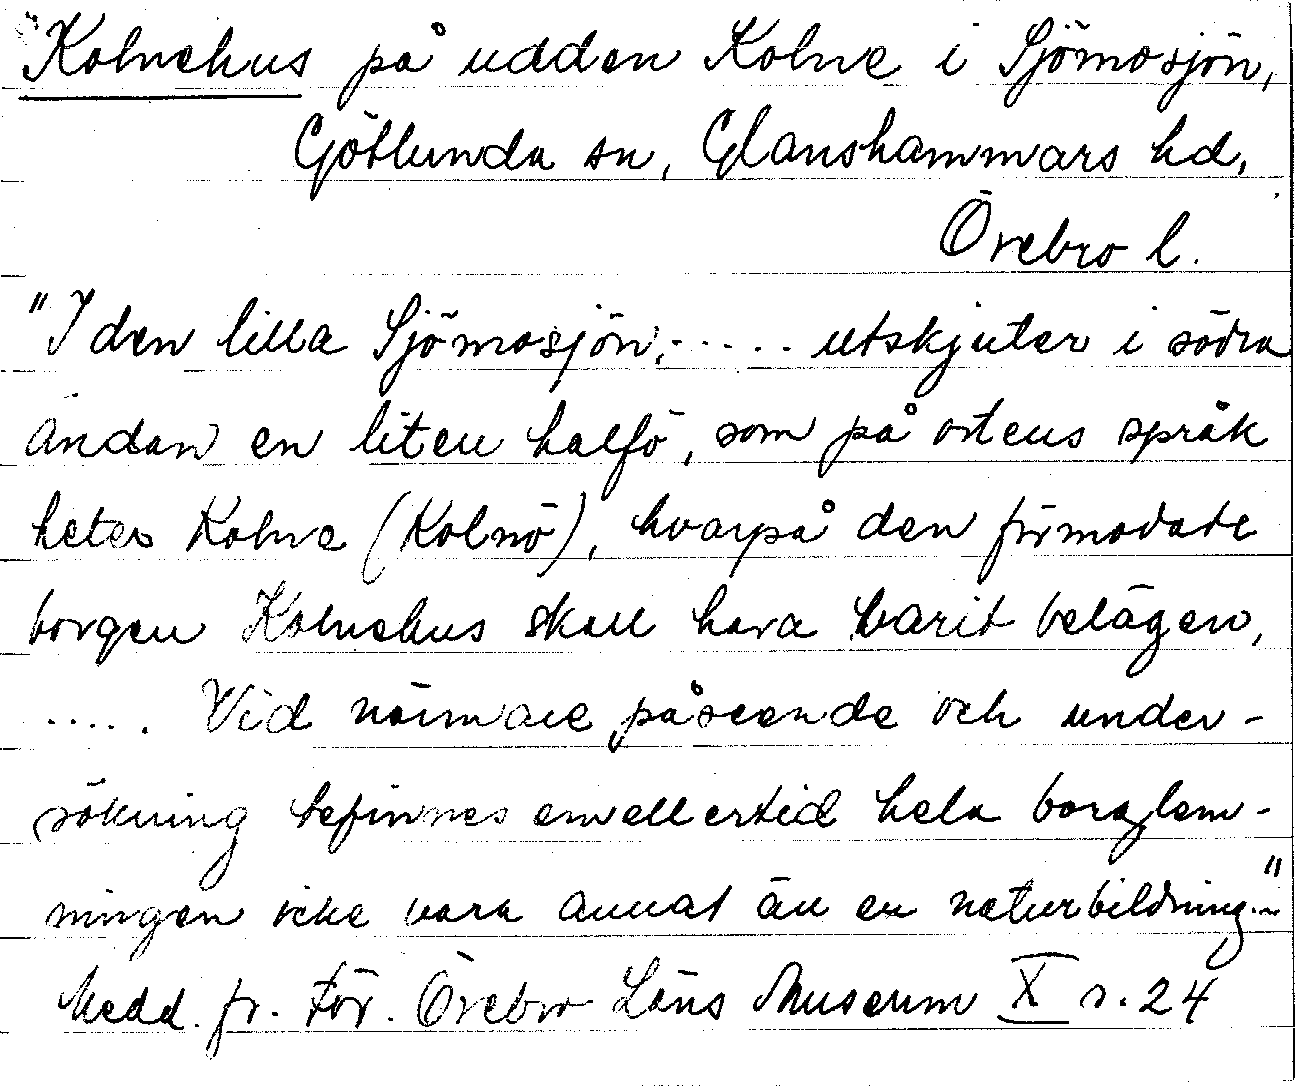 Kolnehus på udden Kolne i Sjömosjön,
Götlunda sn, Glanshammars hd,
Örebro l.
"I den lilla Sjömosjön,..... utskjuter i södra
ändan en liten halfö, som på ortens språk
hetes Kolne (Kolnö), hvarpå den förmodade
borgen Kolnehus skall hava varit belägen,
..... Vid närmare påseende och under-
sökning befinnes emellertid hela borglem-
ningen icke vara annat än en naturbildning..."
Medd. fr. För. Örebro Läns Museum X s. 24